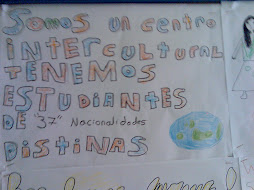 Somos un centro
INTERCULTURAL
TENEMOS
ESTUDIANTES
DE "37" Nacionalidades
DISTINAS